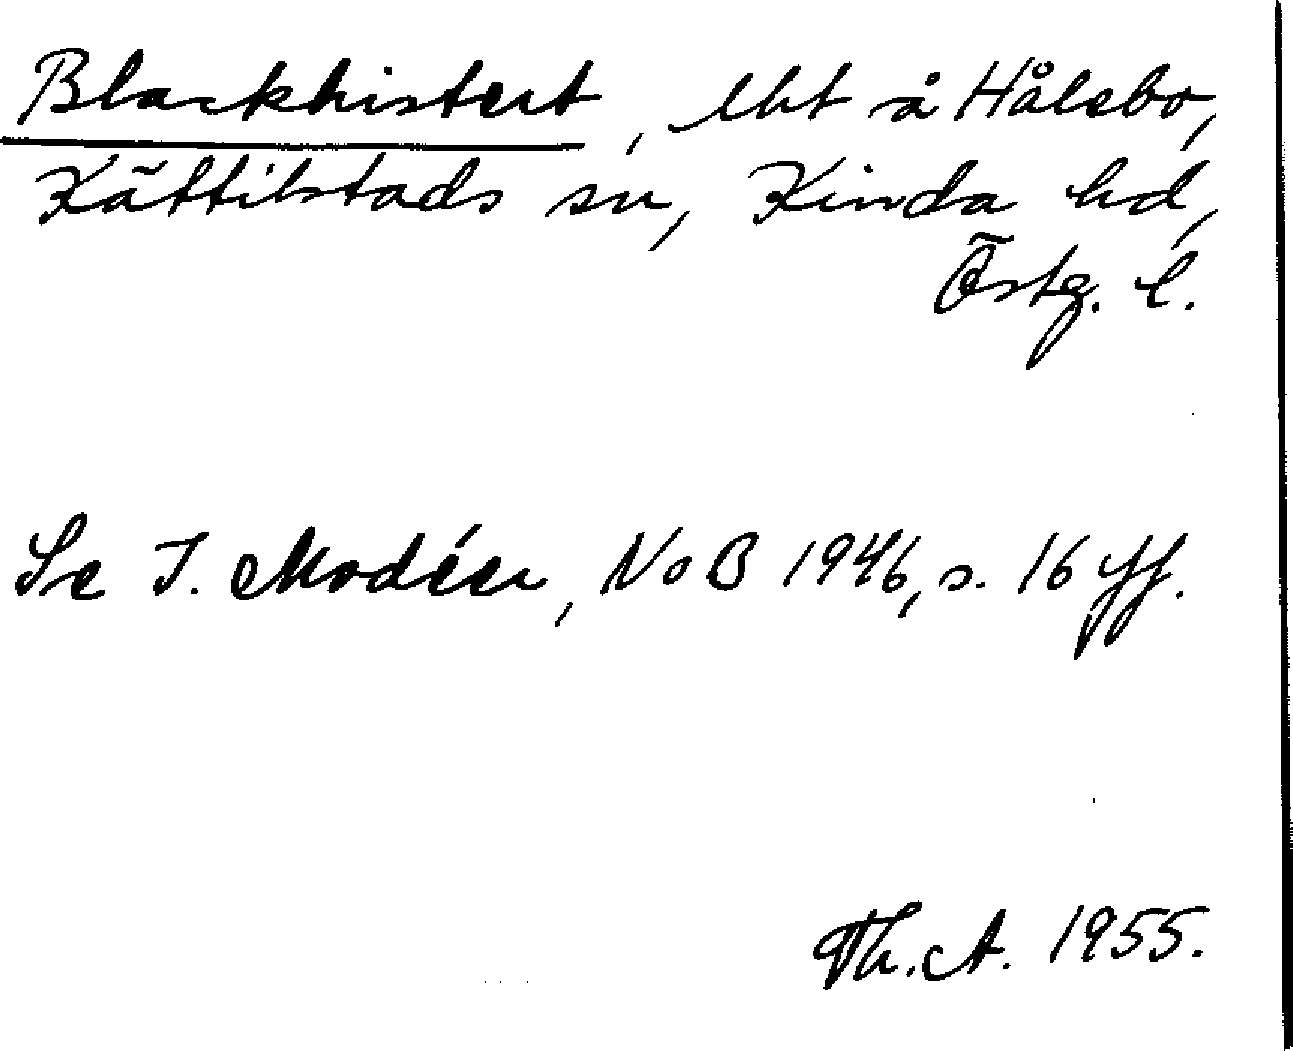 Blackhistert, lht å Hålebo,
Kättilstads sn, Kinda hd,
Östg. l.
Se I. Modéer, NoB 1946, s. 16 ff.
Th. A. 1955.